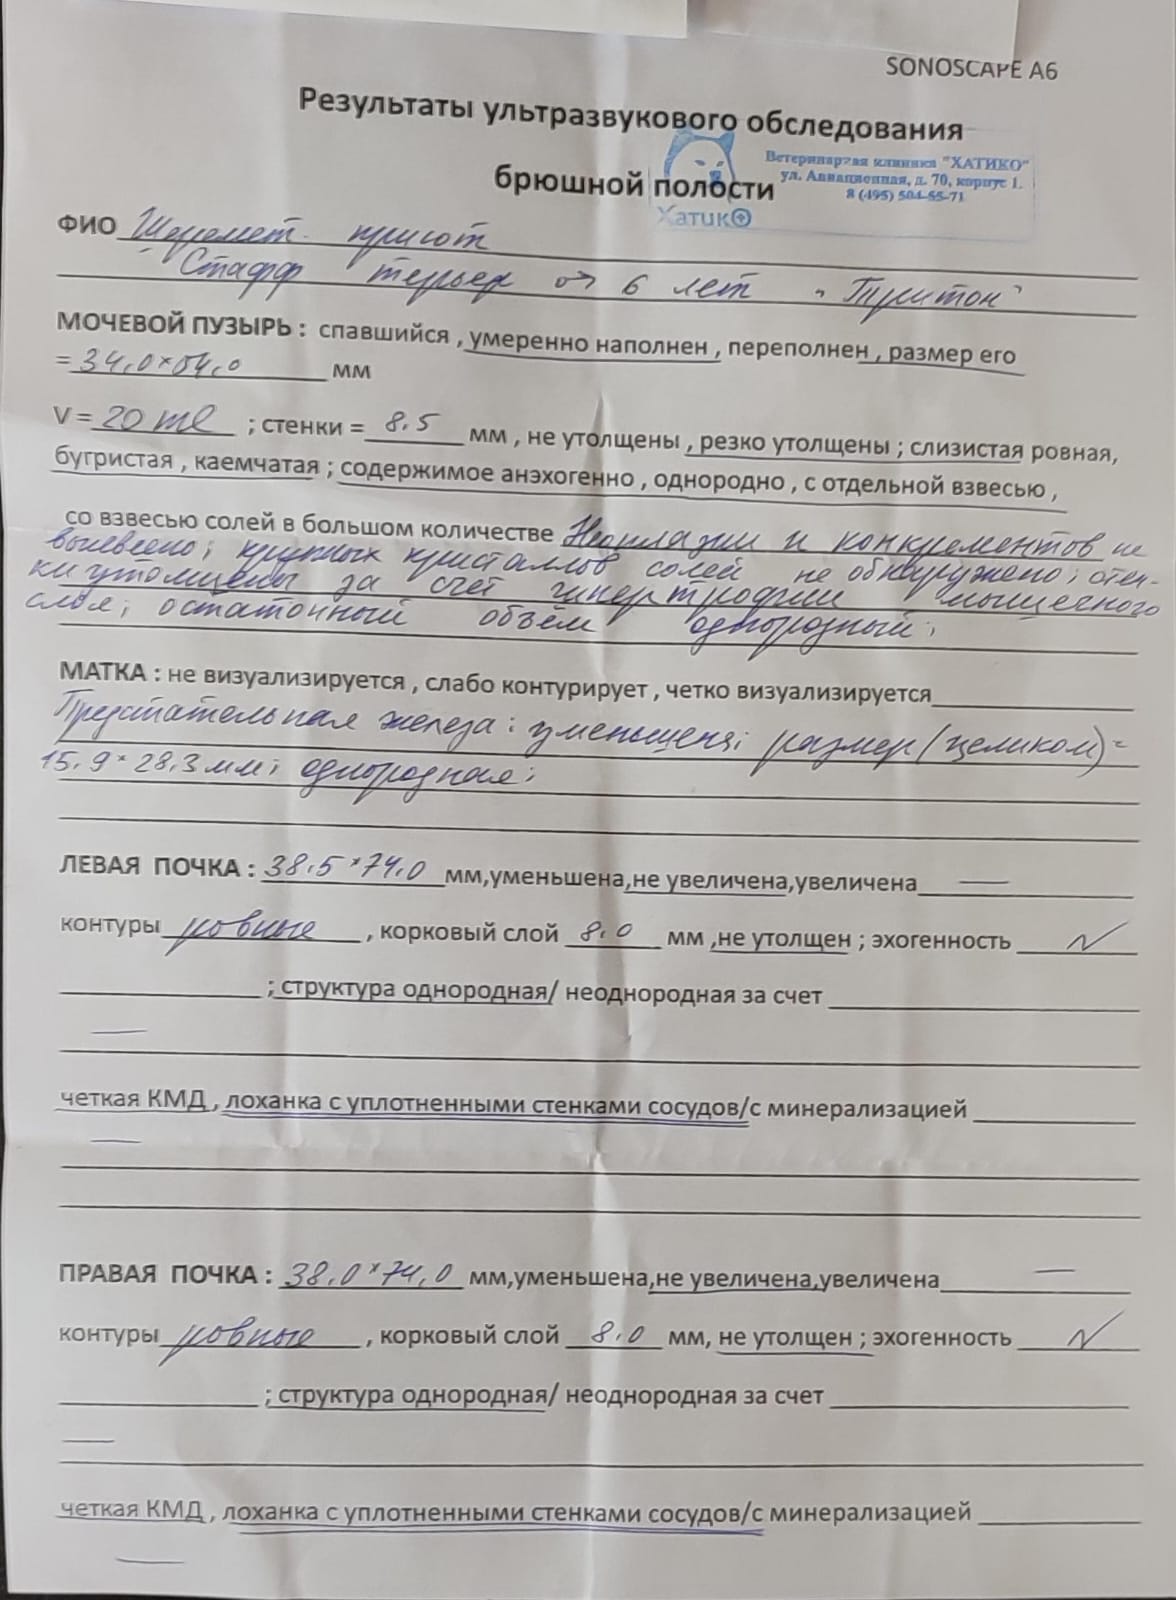 SONOSCAPE A6
Результаты ультразвукового обследования
брюшной полости
Ветеринарная клиника "ХАТИКО"
ул. Авиационная, д. 70, корпус 1.
8 (495) 504-55-71
Хатико
ФИО Шеремет. приют
Стафф терьер 6 лет "Тритон"
МОЧЕВОЙ ПУЗЫРЬ : спавшийся , умеренно наполнен , переполнен , размер его
= 34,0×54,0 мм
V = 20 ml ; стенки = 8.5 мм , не утолщены , резко утолщены ; слизистая ровная,
бугристая , каемчатая ; содержимое анэхогенно , однородно , с отдельной взвесью ,
со взвесью солей в большом количестве Неоплазии и конкрементов не
выявлено; крупных кристаллов солей не обнаружено; стен-
ки утолщены за счет гипертрофии мышечного
слоя; остаточный объём однородный;
МАТКА : не визуализируется , слабо контурирует , четко визуализируется
Предстательная железа: уменьшена; размер (целиком) =
15,9×28,3 мм; однородная;
ЛЕВАЯ ПОЧКА : 38,5×74,0 мм,уменьшена,не увеличена,увеличена —
контуры ровные , корковый слой 8,0 мм ,не утолщен ; эхогенность N
; структура однородная/ неоднородная за счет
—
четкая КМД , лоханка с уплотненными стенками сосудов/с минерализацией
—
ПРАВАЯ ПОЧКА : 38,0×74,0 мм,уменьшена,не увеличена,увеличена —
контуры ровные , корковый слой 8,0 мм, не утолщен ; эхогенность N
; структура однородная/ неоднородная за счет
—
четкая КМД , лоханка с уплотненными стенками сосудов/с минерализацией
—